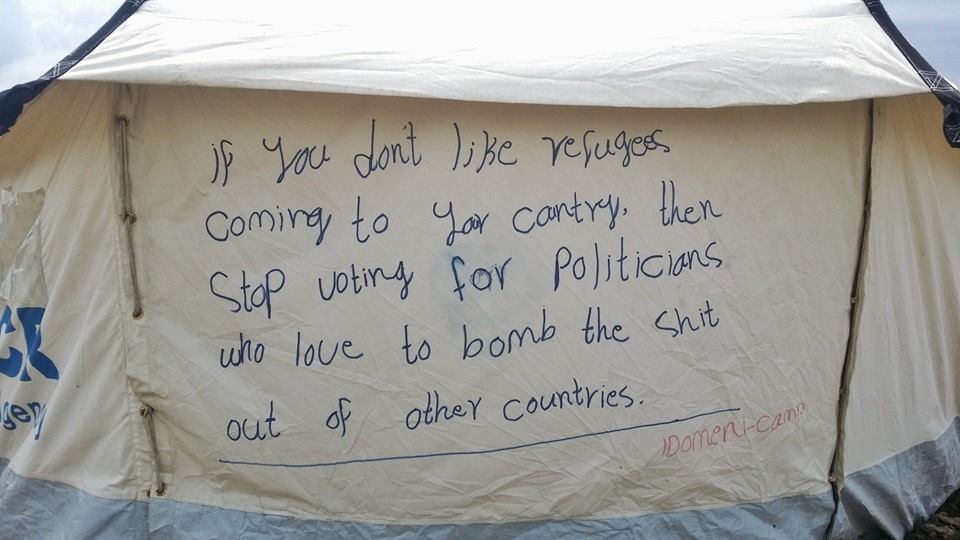 if you don't like refugees
coming to your cantry, then
Stop voting for Politicians
who love to bomb the shit
out of other countries.
IDomeni-camp
CR
gency